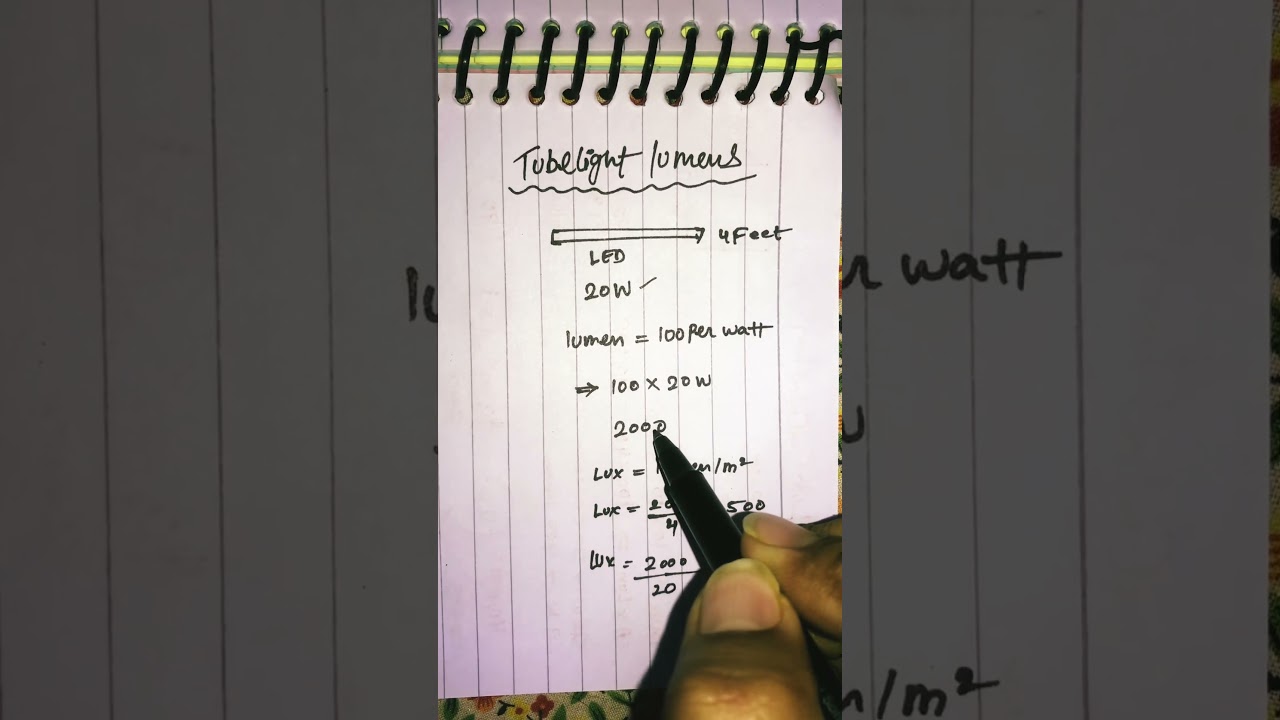 Tubelight lumens
4 Feet
LED
20W ✓
lumen = 100 Per watt
⇒ 100 × 20W
2000
Lux = /m²
Lux = 500
4
Lux = 2000
20